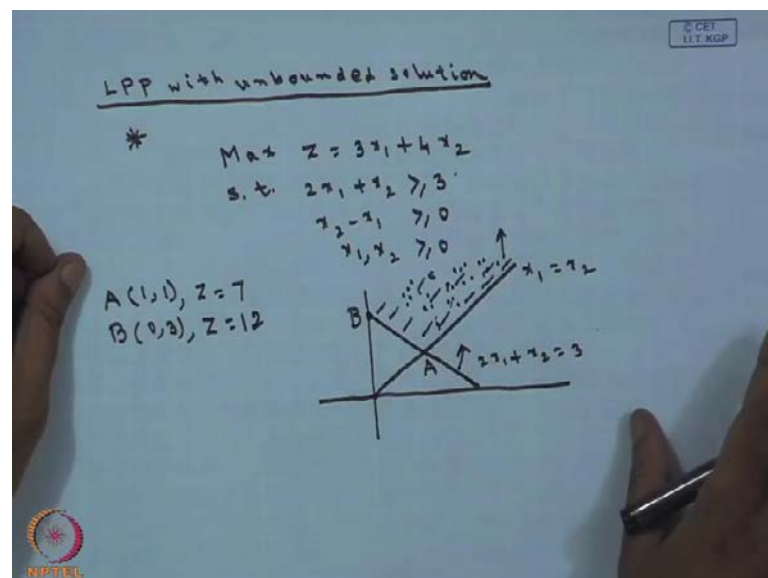 © CET
I.I.T. KGP
LPP with unbounded solution
*
Max Z = 3x₁ + 4x₂
s.t. 2x₁ + x₂ ≥ 3
x₂ - x₁ ≥ 0
x₁, x₂ ≥ 0
A(1,1), Z = 7
B(0,3), Z = 12
x₁ = x₂
B
A
2x₁ + x₂ = 3
NPTEL